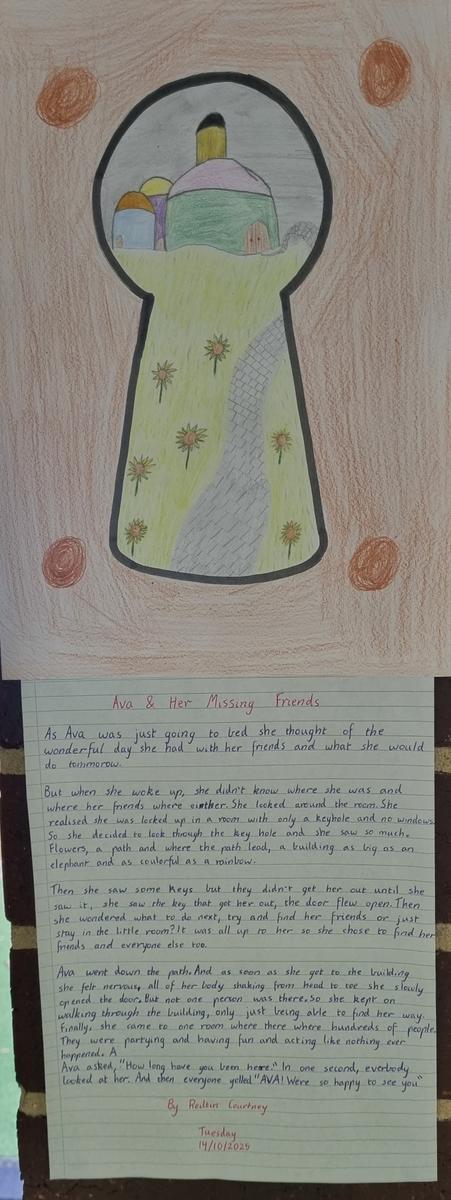 Ava & Her Missing Friends
As Ava was just going to bed she thought of the
wonderful day she had with her friends and what she would
do tommorow.
But when she woke up, she didn't know where she was and
where her friends where either. She looked around the room. She
realised she was locked up in a room with only a keyhole and no windows.
So she decided to look through the key hole and she saw so much.
Flowers, a path and where the path lead, a building as big as an
elephant and as coulorful as a rainbow.
Then she saw some keys but they didn't get her out until she
saw it, she saw the key that got her out, the door flew open. Then
she wondered what to do next, try and find her friends or just
stay in the little room? It was all up to her so she chose to find her
friends and everyone else too.
Ava went down the path. And as soon as she got to the building
she felt nervous, all of her body shaking from head to toe she slowly
opened the door. But not one person was there. So she kept on
walking through the building, only just being able to find her way.
Finally, she came to one room where there where hundreds of people.
They were partying and having fun and acting like nothing ever
happened. A
Ava asked, "How long have you been here." In one second, everbody
looked at her. And then everyone yelled "AVA! Were so happy to see you"
By Courtney
Tuesday
14/10/2025